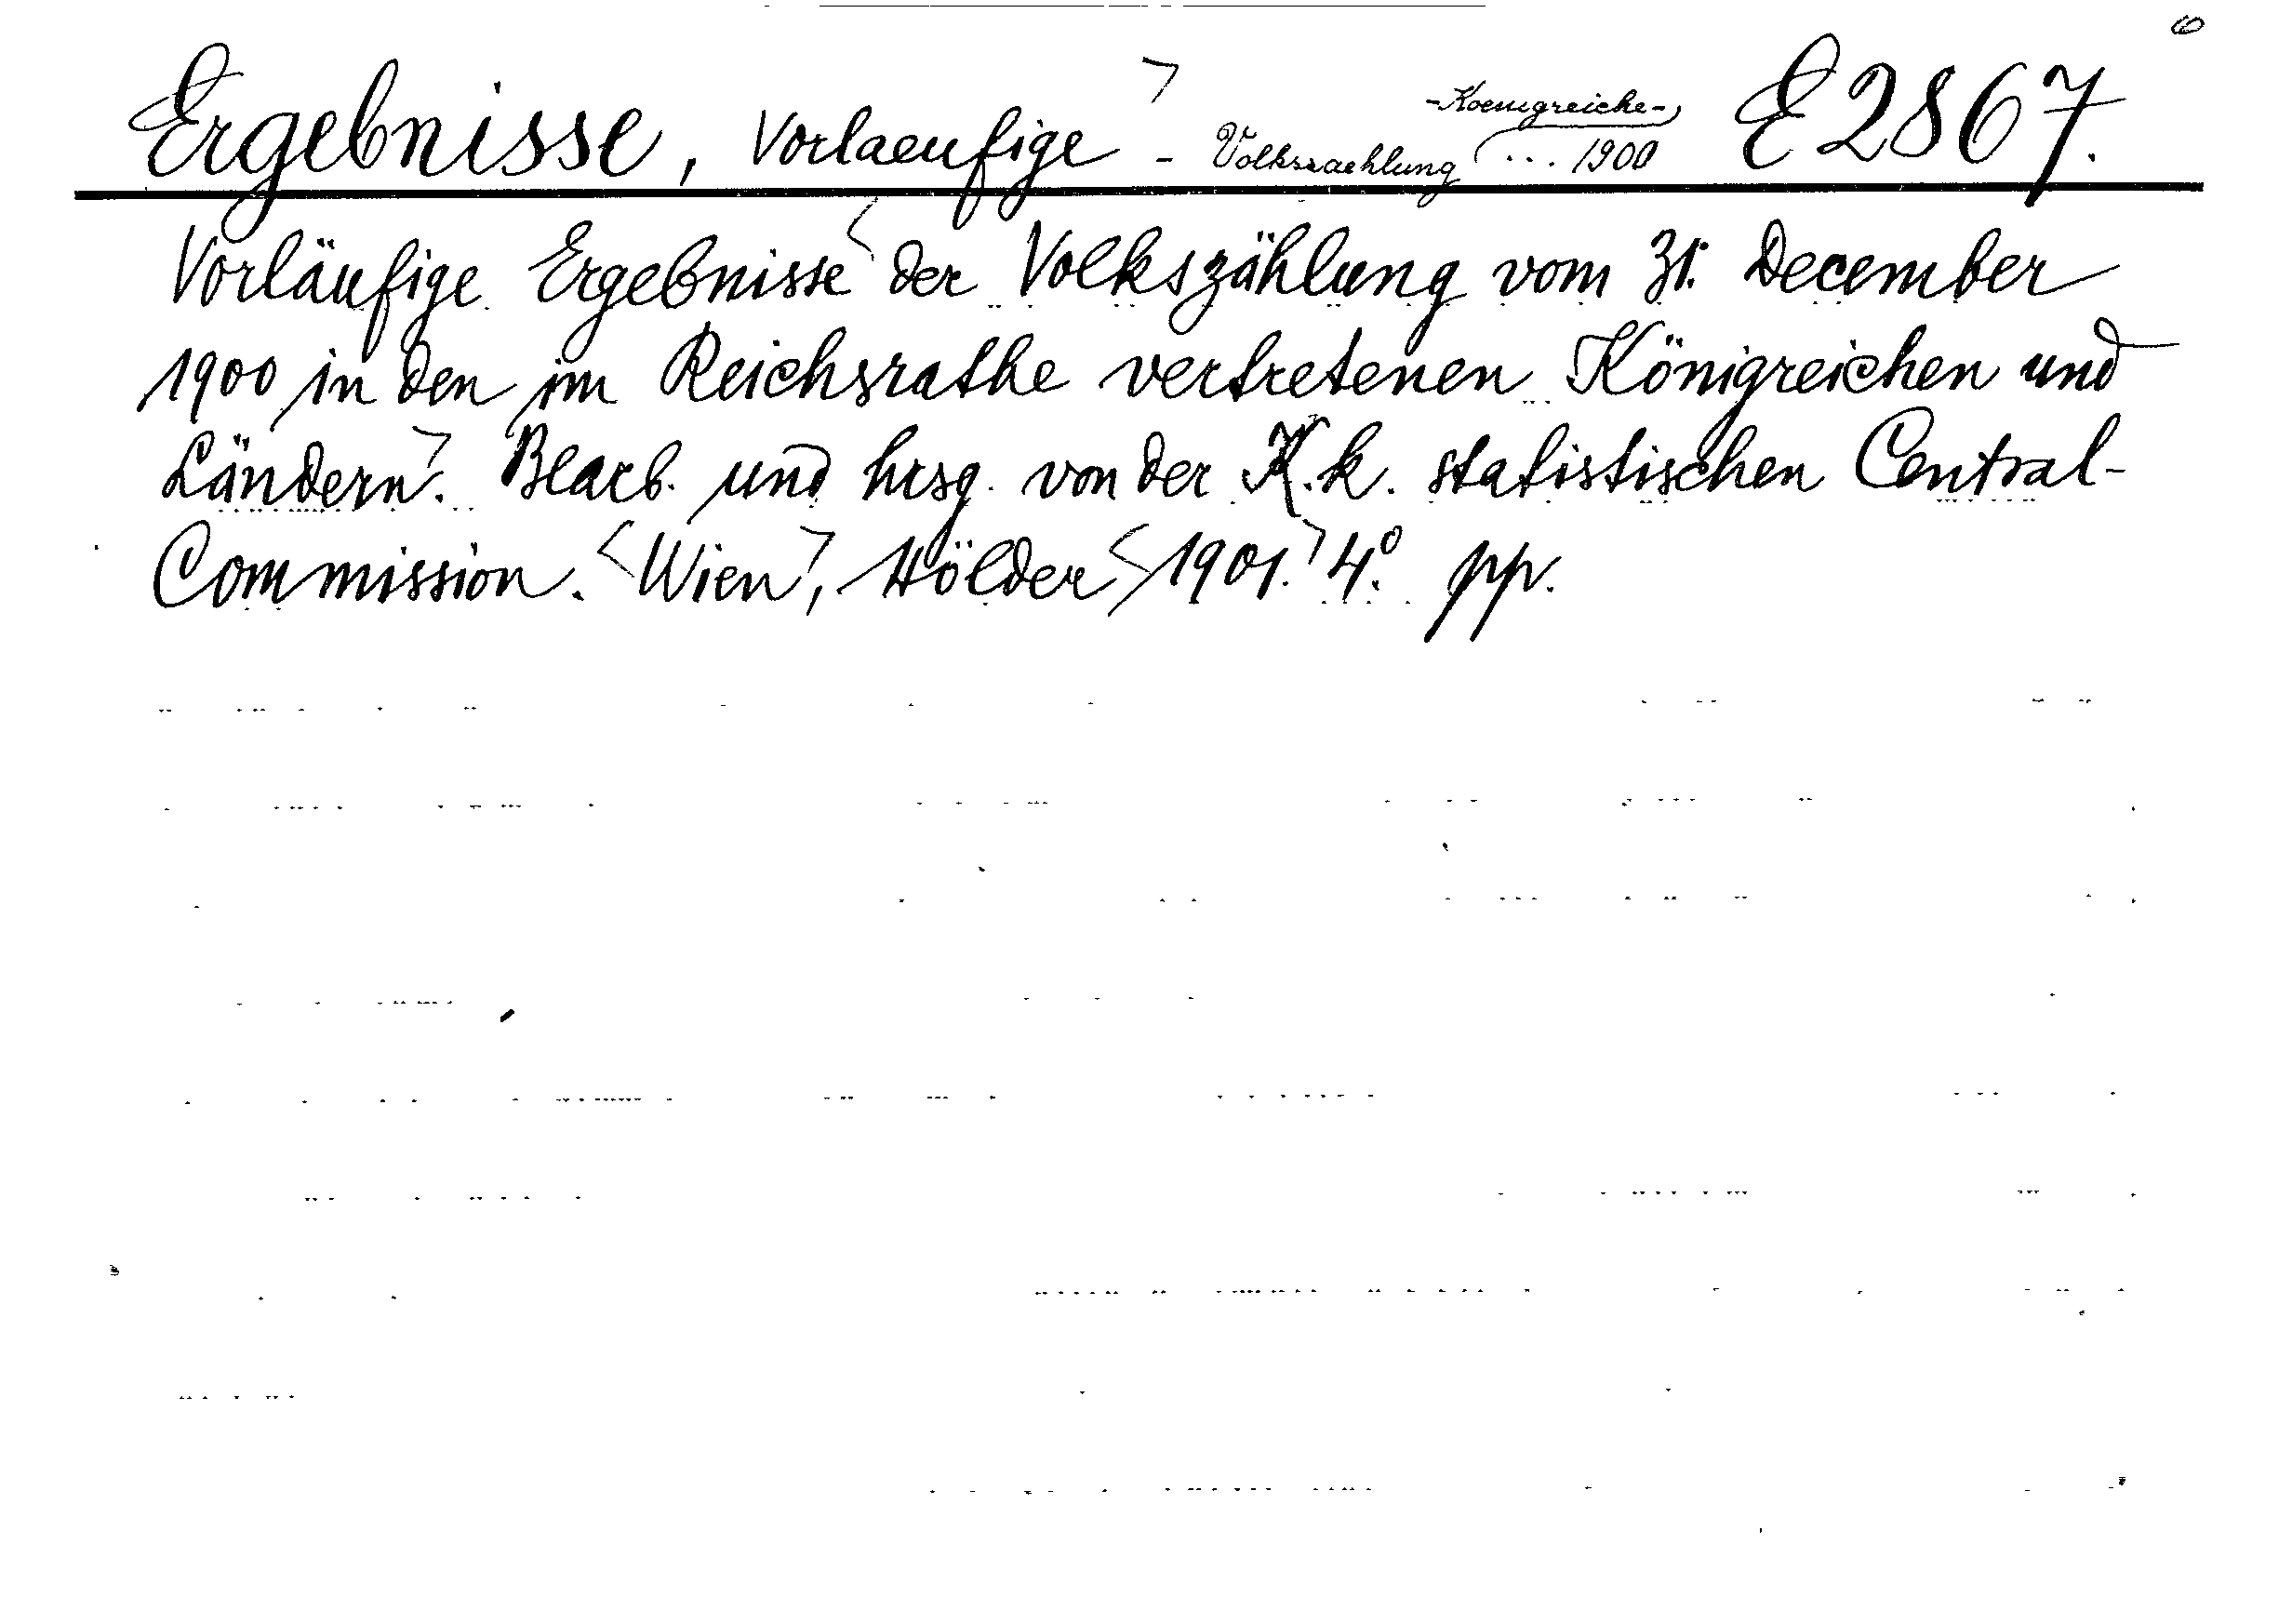 Ergebnisse, Vorlaeufige - Volkszaehlung -Koenigreiche- ... 1900 E 2867.
Vorläufige Ergebnisse der Volkszählung vom 31. December
1900 in den im Reichsrathe vertretenen Königreichen und
Ländern. Bearb. und hrsg. von der K. k. statistischen Central-
Commission. <Wien>, Hölder <1901.> 4.° pp.